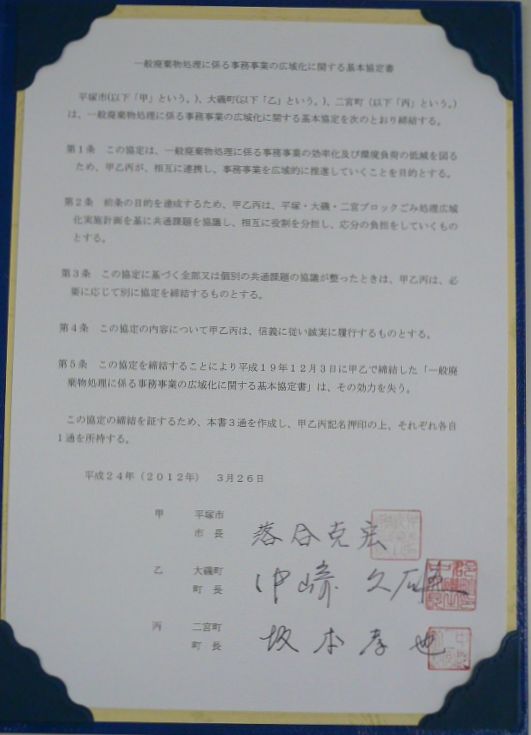 一般廃棄物処理に係る事務事業の広域化に関する基本協定書
平塚市(以下「甲」という。)、大磯町(以下「乙」という。)、二宮町(以下「丙」という。)
は、一般廃棄物処理に係る事務事業の広域化に関する基本協定を次のとおり締結する。
第1条　この協定は、一般廃棄物処理に係る事務事業の効率化及び環境負荷の低減を図る
ため、甲乙丙が、相互に連携し、事務事業を広域的に推進していくことを目的とする。
第2条　前条の目的を達成するため、甲乙丙は、平塚・大磯・二宮ブロックごみ処理広域
化実施計画を基に共通課題を協議し、相互に役割を分担し、応分の負担をしていくもの
とする。
第3条　この協定に基づく全部又は個別の共通課題の協議が整ったときは、甲乙丙は、必
要に応じて別に協定を締結するものとする。
第4条　この協定の内容について甲乙丙は、信義に従い誠実に履行するものとする。
第5条　この協定を締結することにより平成19年12月3日に甲乙で締結した「一般廃
棄物処理に係る事務事業の広域化に関する基本協定書」は、その効力を失う。
この協定の締結を証するため、本書3通を作成し、甲乙丙記名押印の上、それぞれ各自
1通を所持する。
平成24年(2012年)　3月26日
甲　平塚市
市　長　落合克宏
乙　大磯町
町　長　中﨑久雄
丙　二宮町
町　長　坂本孝也